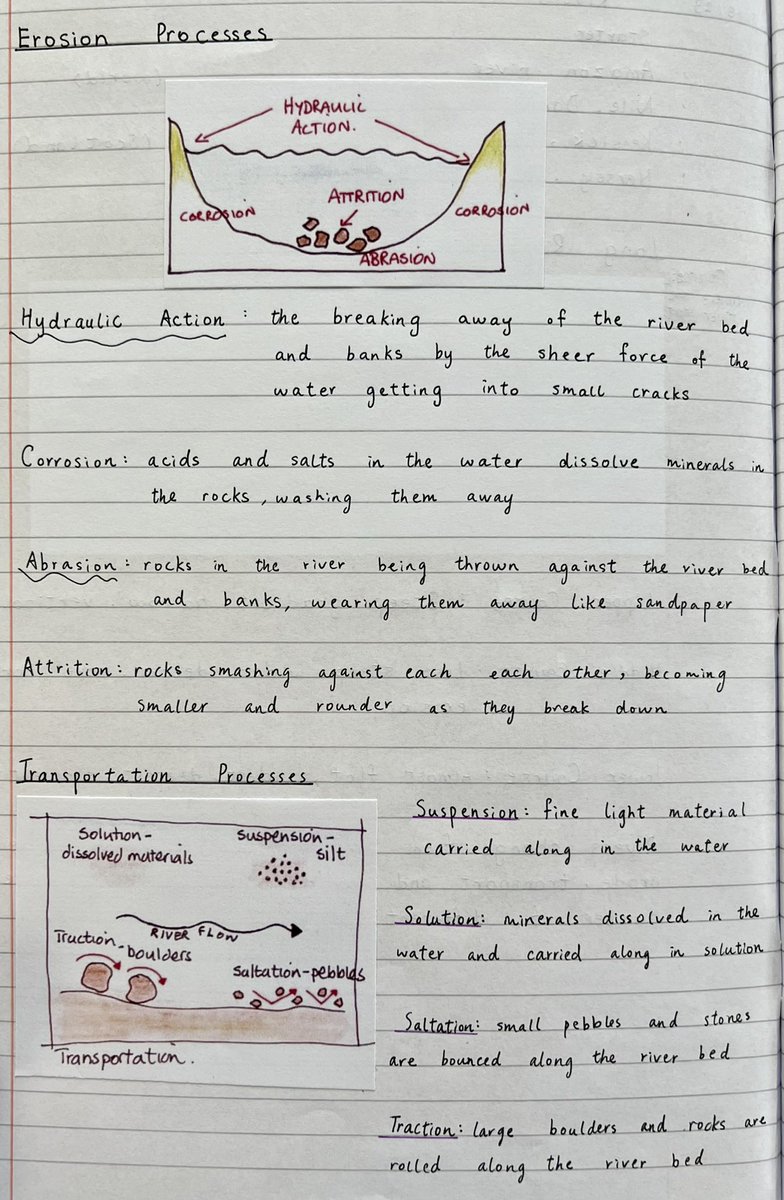 Erosion Processes
HYDRAULIC
ACTION.
ATTRITION
CORROSION
CORROSION
ABRASION
Hydraulic Action : the breaking away of the river bed
and banks by the sheer force of the
water getting into small cracks
Corrosion : acids and salts in the water dissolve minerals in
the rocks, washing them away
Abrasion : rocks in the river being thrown against the river bed
and banks, wearing them away like sandpaper
Attrition : rocks smashing against each each other, becoming
smaller and rounder as they break down
Transportation Processes
Solution -
dissolved materials
Suspension -
silt
RIVER FLOW
Traction -
boulders
Saltation - pebbles
Transportation.
Suspension : fine light material
carried along in the water
Solution : minerals dissolved in the
water and carried along in solution
Saltation : small pebbles and stones
are bounced along the river bed
Traction : large boulders and rocks are
rolled along the river bed